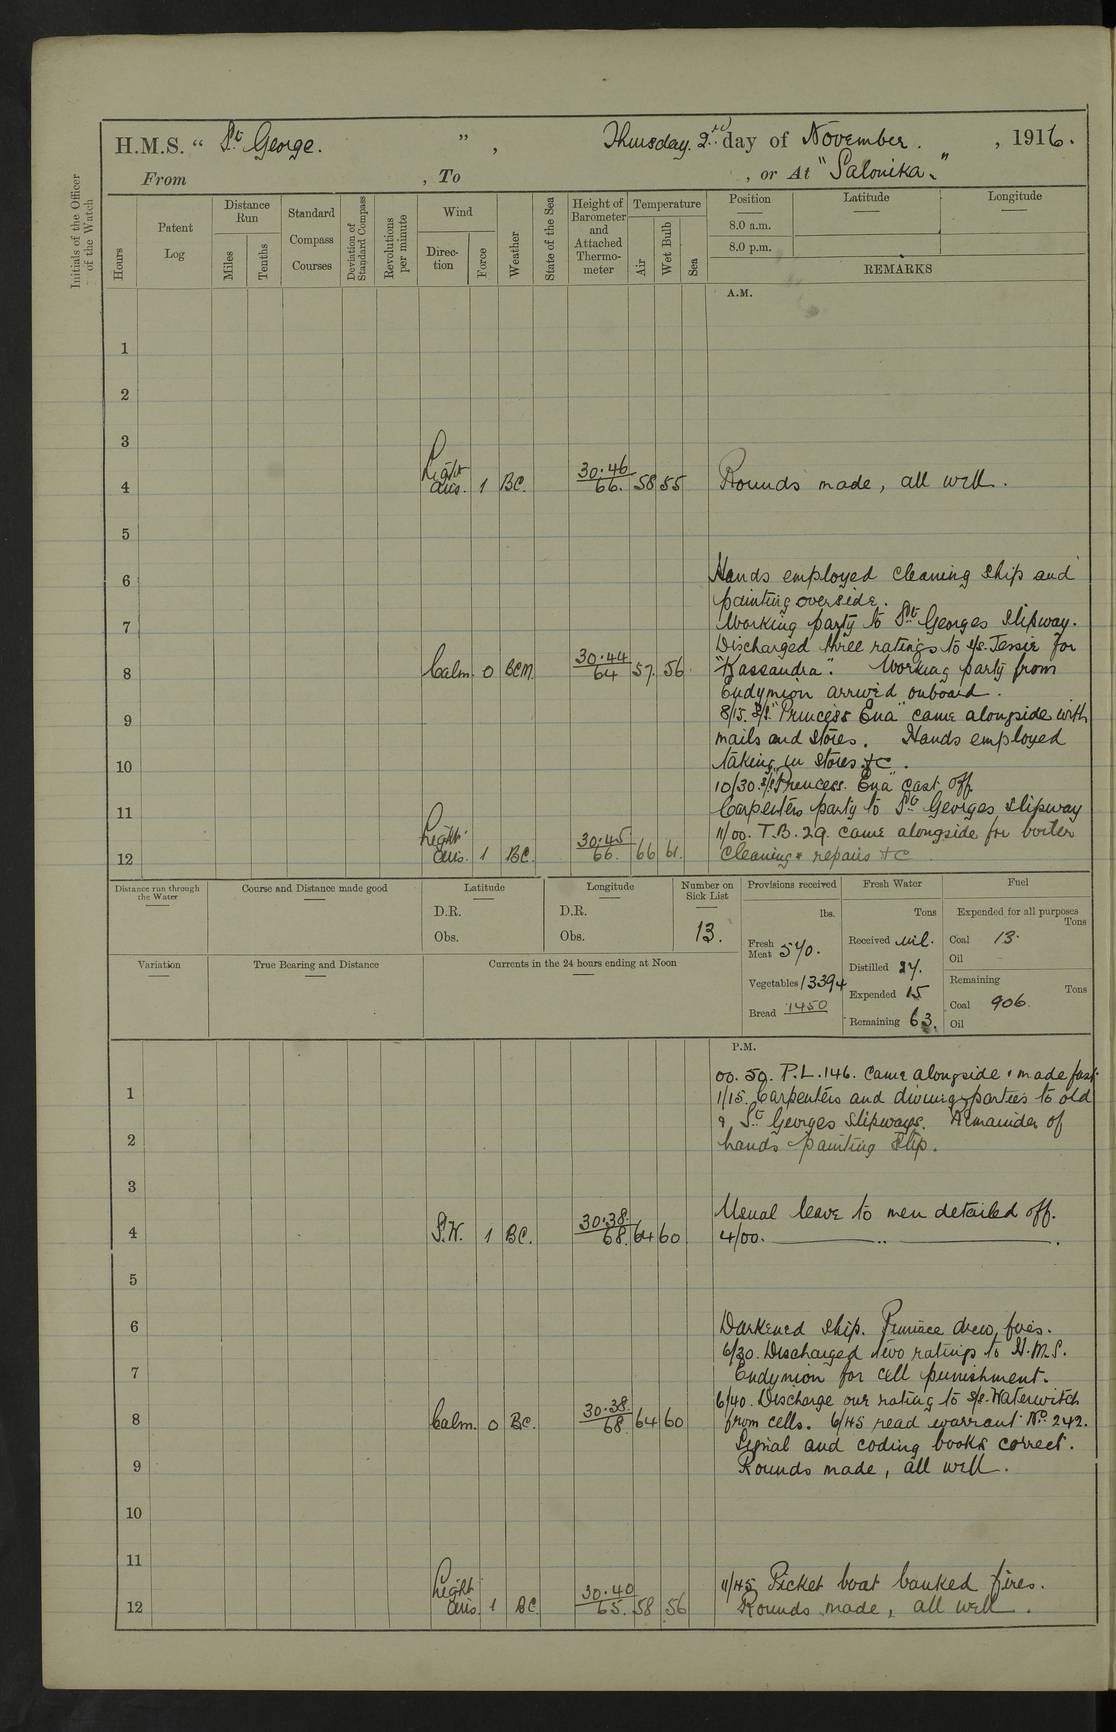 H.M.S. “ St. George. ”, Thursday. 2nd day of November. , 1916.
From , To , or At "Salonika."
Initials of the Officer of the Watch
Hours
Patent Log
Distance Run
Miles
Tenths
Standard Compass Courses
Deviation of Standard Compass
Revolutions per minute
Wind
Direc-tion
Force
Weather
State of the Sea
Height of Barometer and Attached Thermo-meter
Temperature
Air
Wet Bulb
Sea
Position
8.0 a.m.
8.0 p.m.
Latitude
Longitude
REMARKS
A.M.
1
2
3
4 Light airs. 1 BC. 30.46 66. 58 55 Rounds made, all well.
5
6 Hands employed cleaning ship and
painting overside.
7 Working party to St. Georges Slipway.
Discharged three ratings to s/s. Jessie for
8 Calm. 0 BCM. 30.44 64 57. 56 "Kassandra". Working party from
Endymion arrived onboard.
9 8/15. s/s. "Princess Ena" came alongside with
mails and stores. Hands employed
10 taking in stores &c.
10/30. s/s "Princess Ena" cast off.
11 Carpenters party to St Georges slipway
11/00. T.B. 29. came alongside for boiler
12 Light airs. 1 BC. 30.45 66. 66 61. cleaning & repairs &c
Distance run through the Water
Course and Distance made good
Latitude
D.R.
Obs.
Longitude
D.R.
Obs.
Number on Sick List
13.
Provisions received
lbs.
Fresh Meat 540.
Vegetables 13394
Bread 1450
Fresh Water
Tons
Received nil.
Distilled 27.
Expended 15
Remaining 63.
Fuel
Expended for all purposes
Tons
Coal 13.
Oil
Remaining
Tons
Coal 906.
Oil
Variation
True Bearing and Distance
Currents in the 24 hours ending at Noon
P.M.
00.50. P.L. 146. came alongside & made fast
1 1/15. Carpenters and diving parties to old
& St Georges Slipways. Remainder of
2 hands painting ship.
3
Usual leave to men detailed off.
4 S.W. 1 BC. 30.38. 68. 64 60 4/00. ——— " ———.
5
6 Darkened ship. Pinnace drew fires.
6/30. Discharged two ratings to H.M.S.
7 Endymion for cell punishment.
6/40. Discharge our rating to s/s. Waterwitch
8 Calm. 0 BC. 30.38. 68. 64 60 from cells. 6/45 read warrant No. 242.
Signal and coding books correct.
9 Rounds made, all well.
10
11
11/45 Picket boat banked fires.
12 Light airs. 1 BC 30.40 65. 58 56 Rounds made, all well.